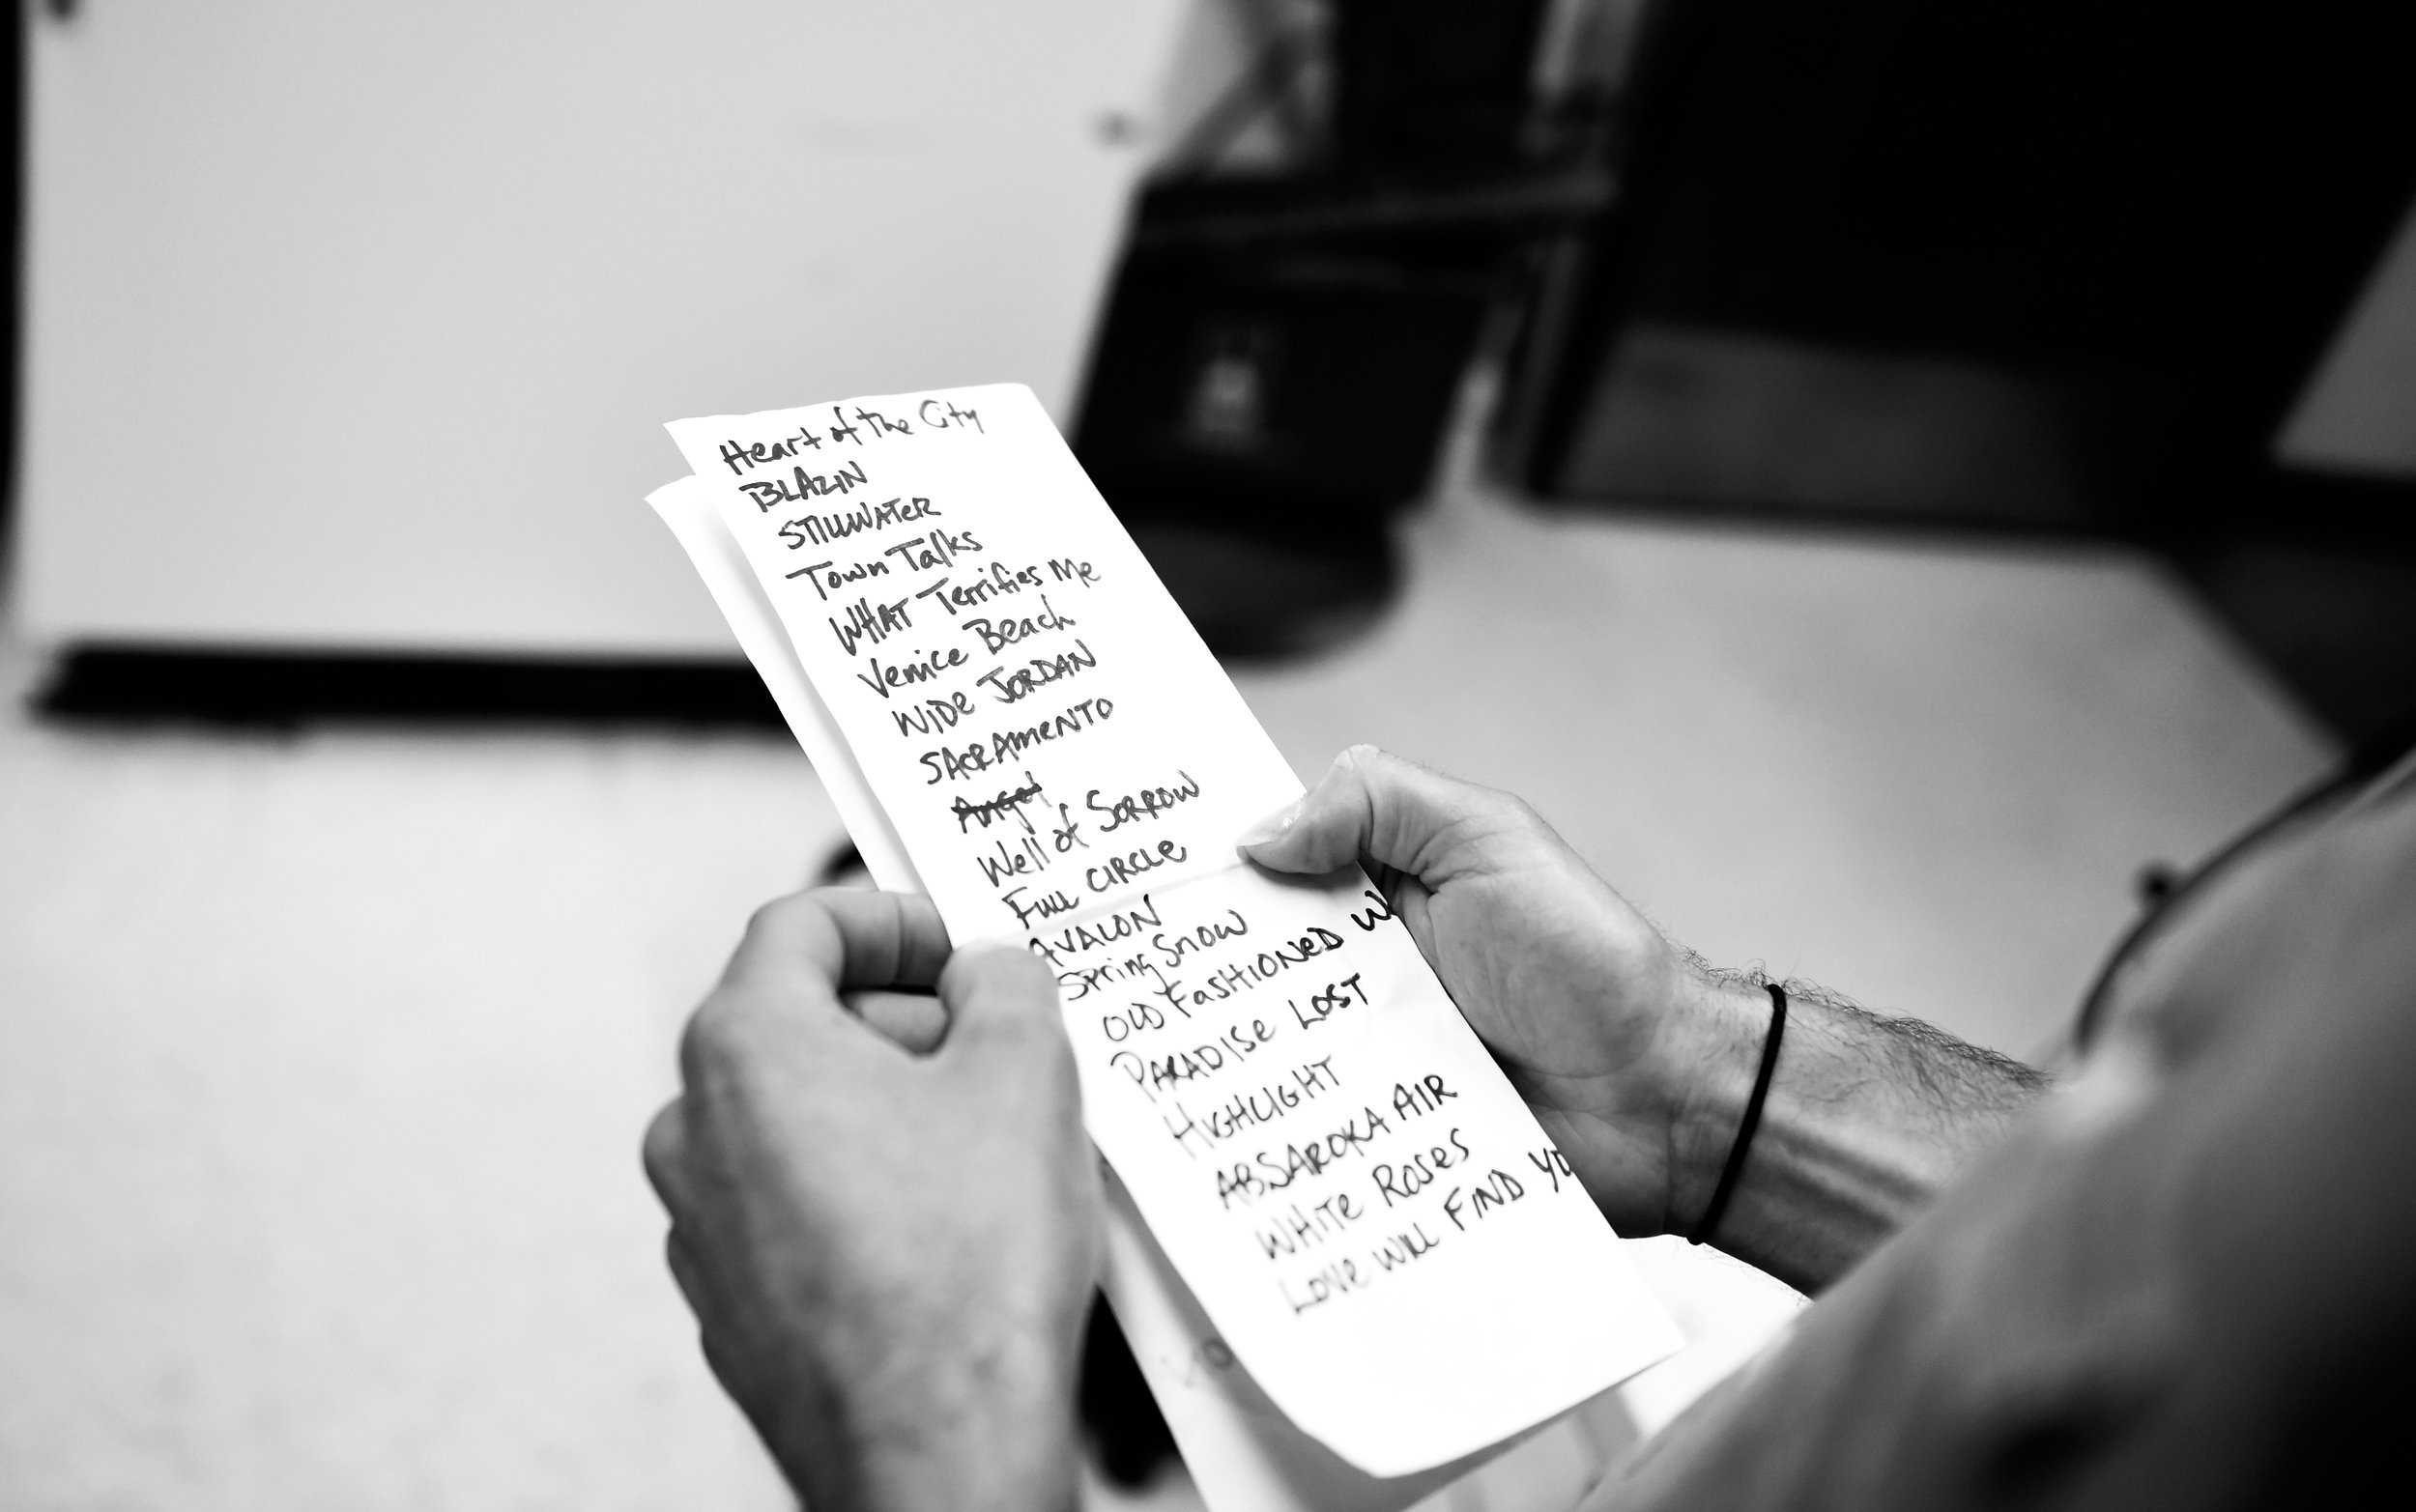 Heart of the City
BLAZIN
STILLWATER
Town Talks
WHAT Terrifies Me
Venice Beach
WIDE JORDAN
SACRAMENTO
Angel
Well of Sorrow
Full CIRCLE
AVALON
Spring Snow
OLD FASHIONED W
PARADISE LOST
HIGHLIGHT
ABSAROKA AIR
WHITE ROSES
LOVE WILL FIND YO